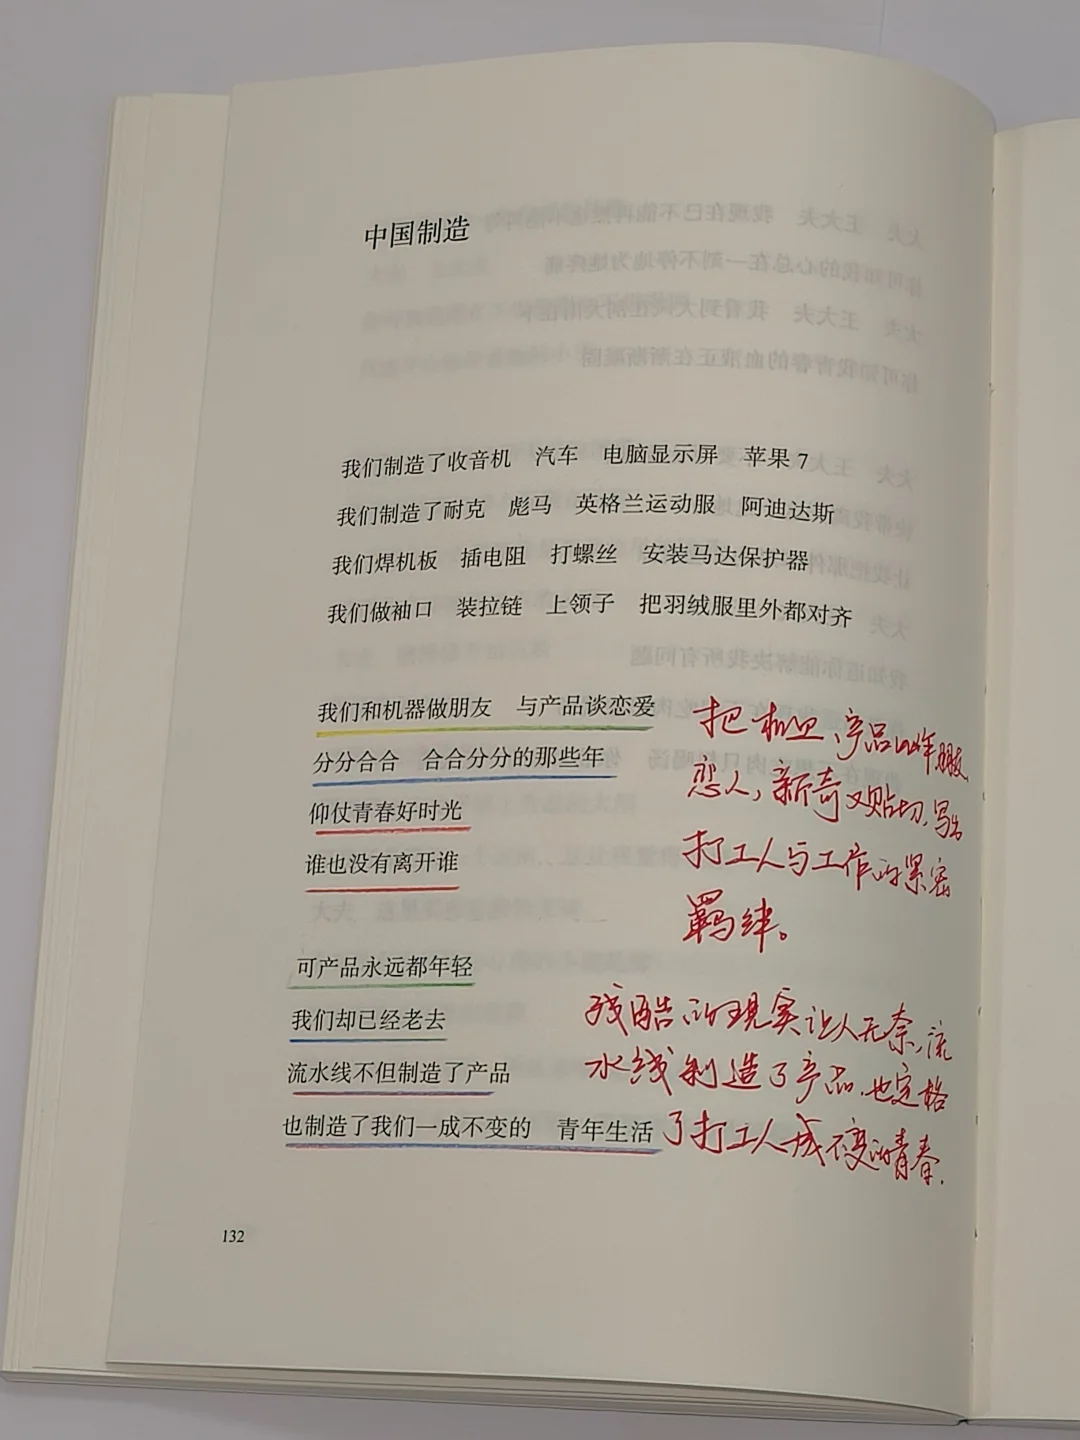 中国制造
我们制造了收音机　汽车　电脑显示屏　苹果 7
我们制造了耐克　彪马　英格兰运动服　阿迪达斯
我们焊机板　插电阻　打螺丝　安装马达保护器
我们做袖口　装拉链　上领子　把羽绒服里外都对齐
我们和机器做朋友　与产品谈恋爱
分分合合　合合分分的那些年
仰仗青春好时光
谁也没有离开谁
把机四、产品比作朋友
恋人，新奇又贴切，写出
打工人与工作的紧密
羁绊。
可产品永远都年轻
我们却已经老去
流水线不但制造了产品
也制造了我们一成不变的　青年生活
残酷的现实让人无奈，流
水线制造了产品，也定格
了打工人一成不变的青春.
132